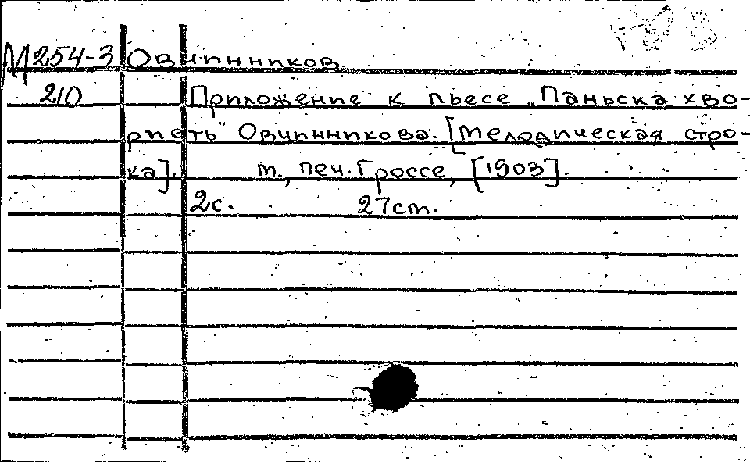 М254-3 Овчинников
210 Приложение к пьесе „Паньска хво-
ристь" Овчинникова. [Мелодическая стро-
ка]. м., печ. Гроссе, [1903].
2с. 27см.